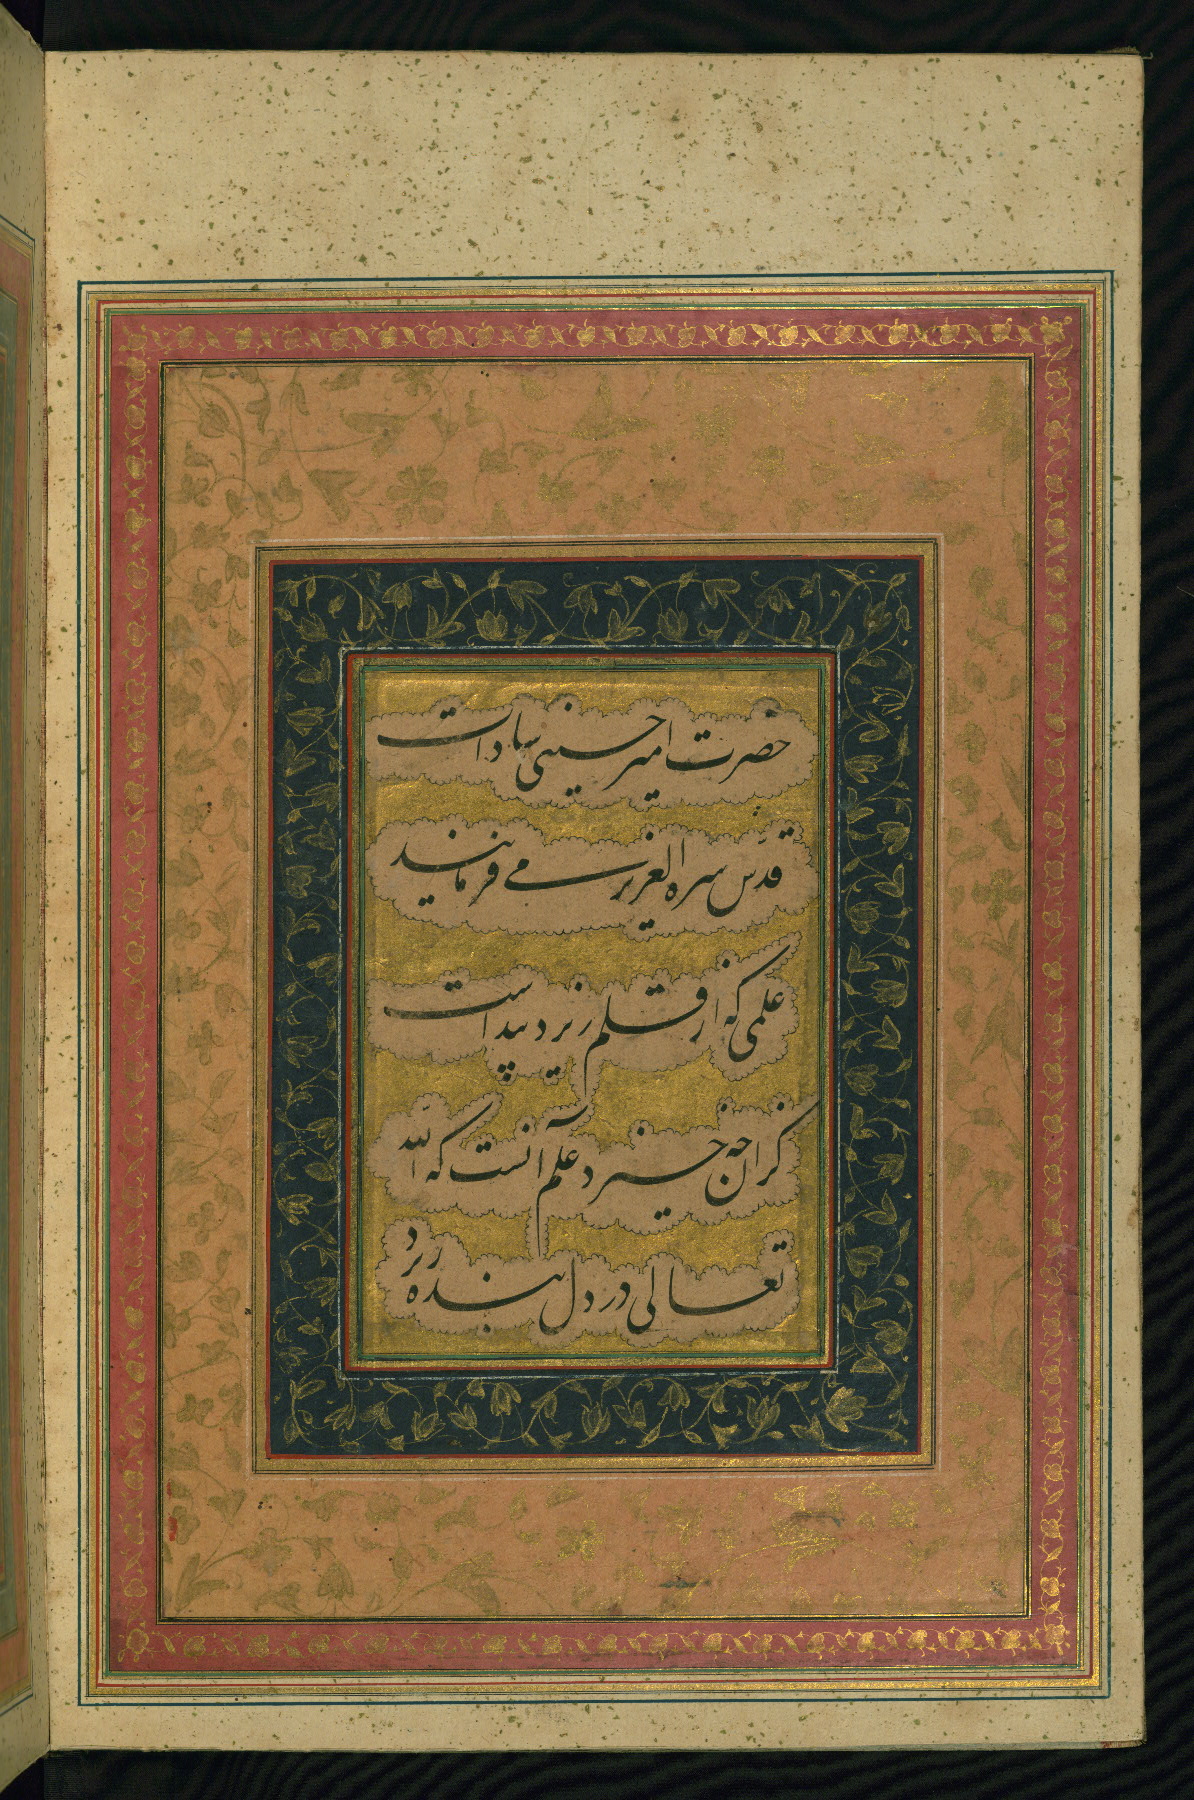 حضرت امیر حسینی سادات
قدّس سره العزیز می فرمایند
علمی که از قلم ریزد پیداست
کزان چه خیزد علم آنست که الله
تعالی در دل بنده ریزد